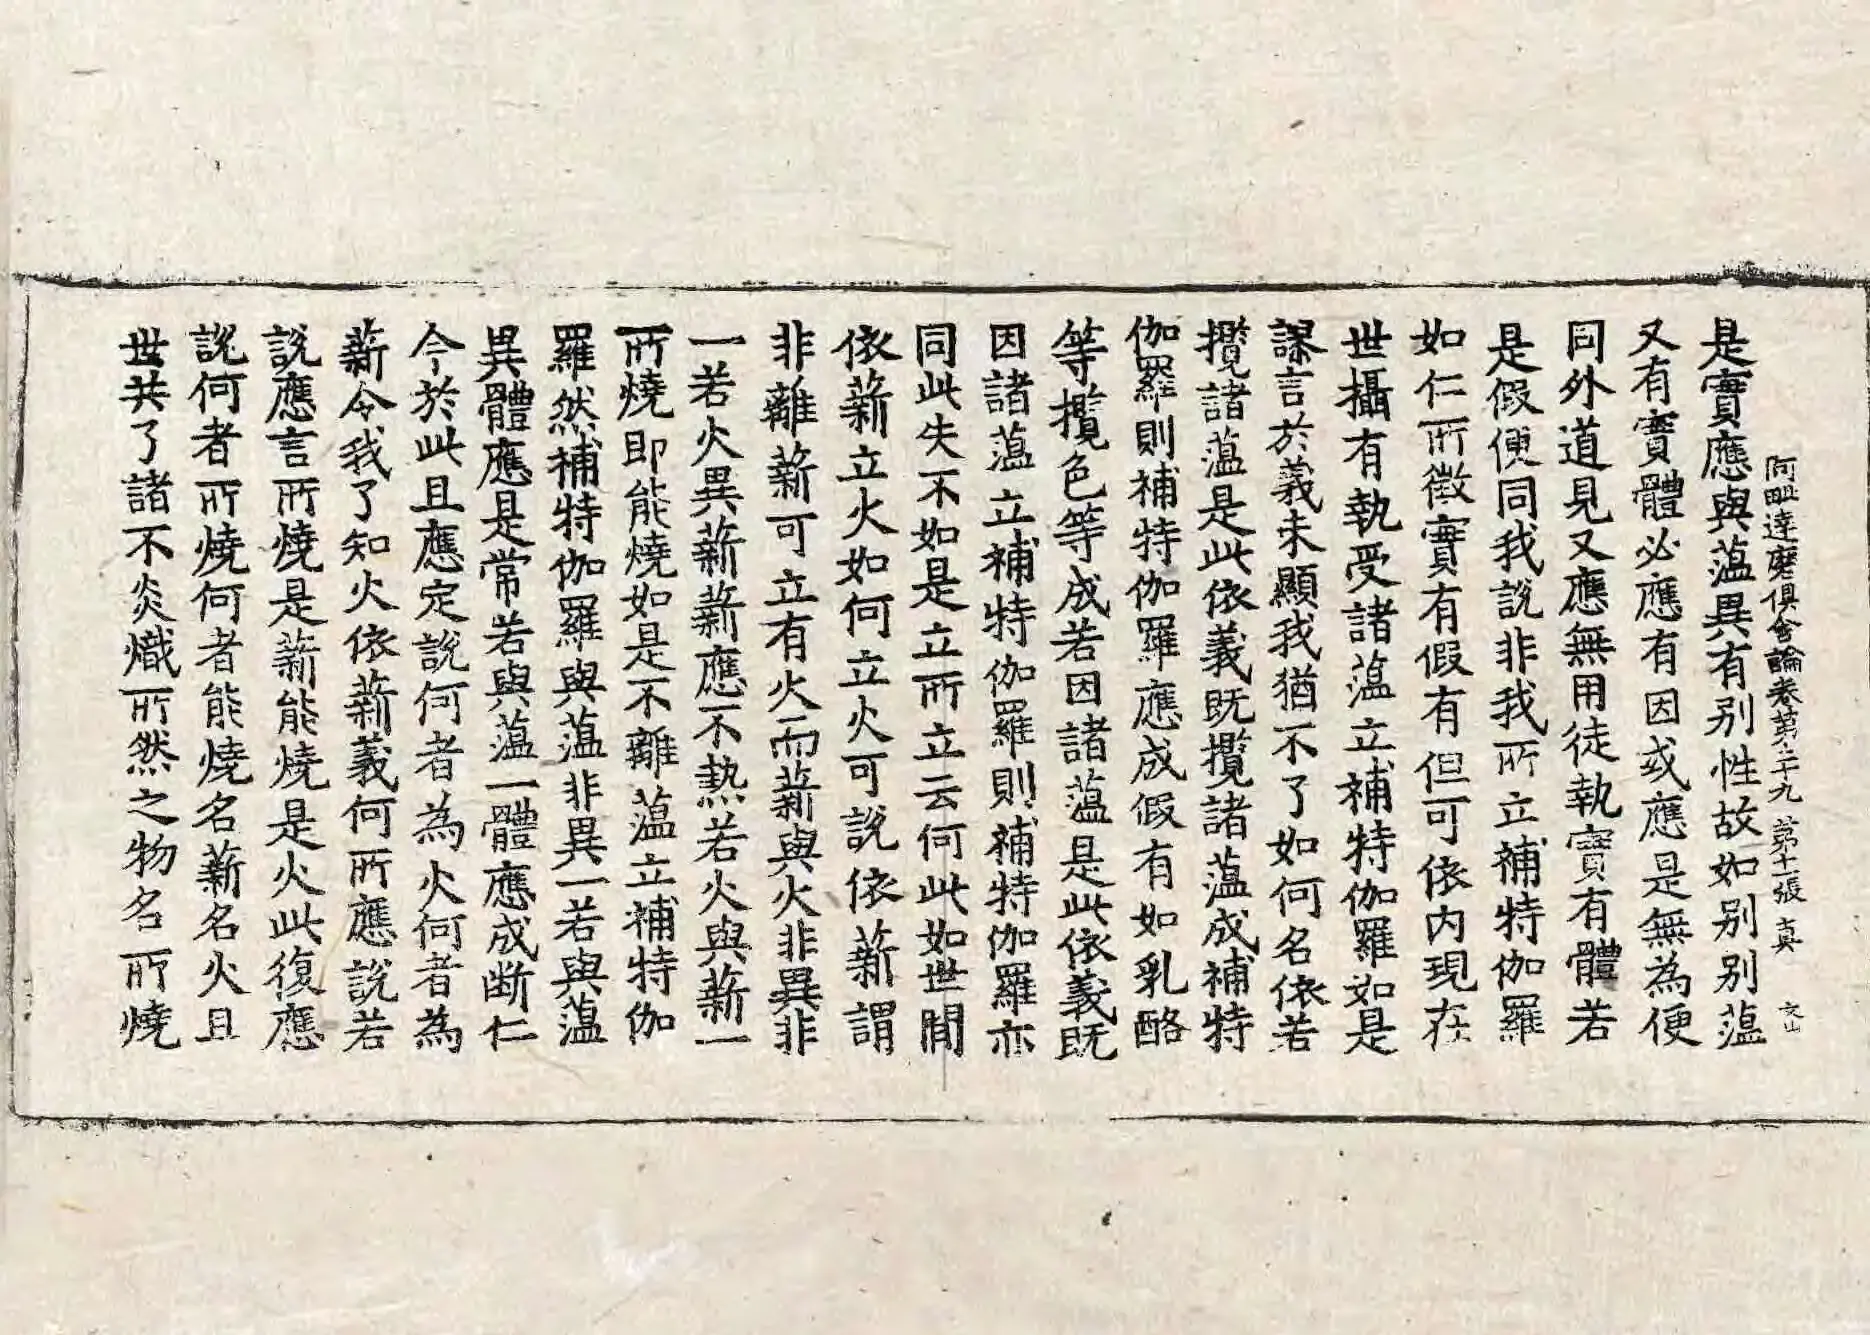 阿毗達磨俱舍論卷第二十九 第十一張 真 文山
是實應與蘊異有別性故如別別蘊
又有實體必應有因或應是無為便
同外道見又應無用徒執實有體若
是假便同我說非我所立補特伽羅
如仁所徵實有假有但可依內現在
世攝有執受諸蘊立補特伽羅如是
謬言於義未顯我猶不了如何名依若
攬諸蘊是此依義既攬諸蘊成補特
伽羅則補特伽羅應成假有如乳酪
等攬色等成若因諸蘊是此依義既
因諸蘊立補特伽羅則補特伽羅亦
同此失不如是立所立云何此如世間
依薪立火如何立火可說依薪謂
非離薪可立有火而薪與火非異非
一若火異薪薪應不熱若火與薪一
所燒即能燒如是不離蘊立補特伽
羅然補特伽羅與蘊非異一若與蘊
異體應是常若與蘊一體應成断仁
今於此且應定說何者為火何者為
薪令我了知火依薪義何所應說若
說應言所燒是薪能燒是火此復應
說何者所燒何者能燒名薪名火且
世共了諸不炎熾所然之物名所燒